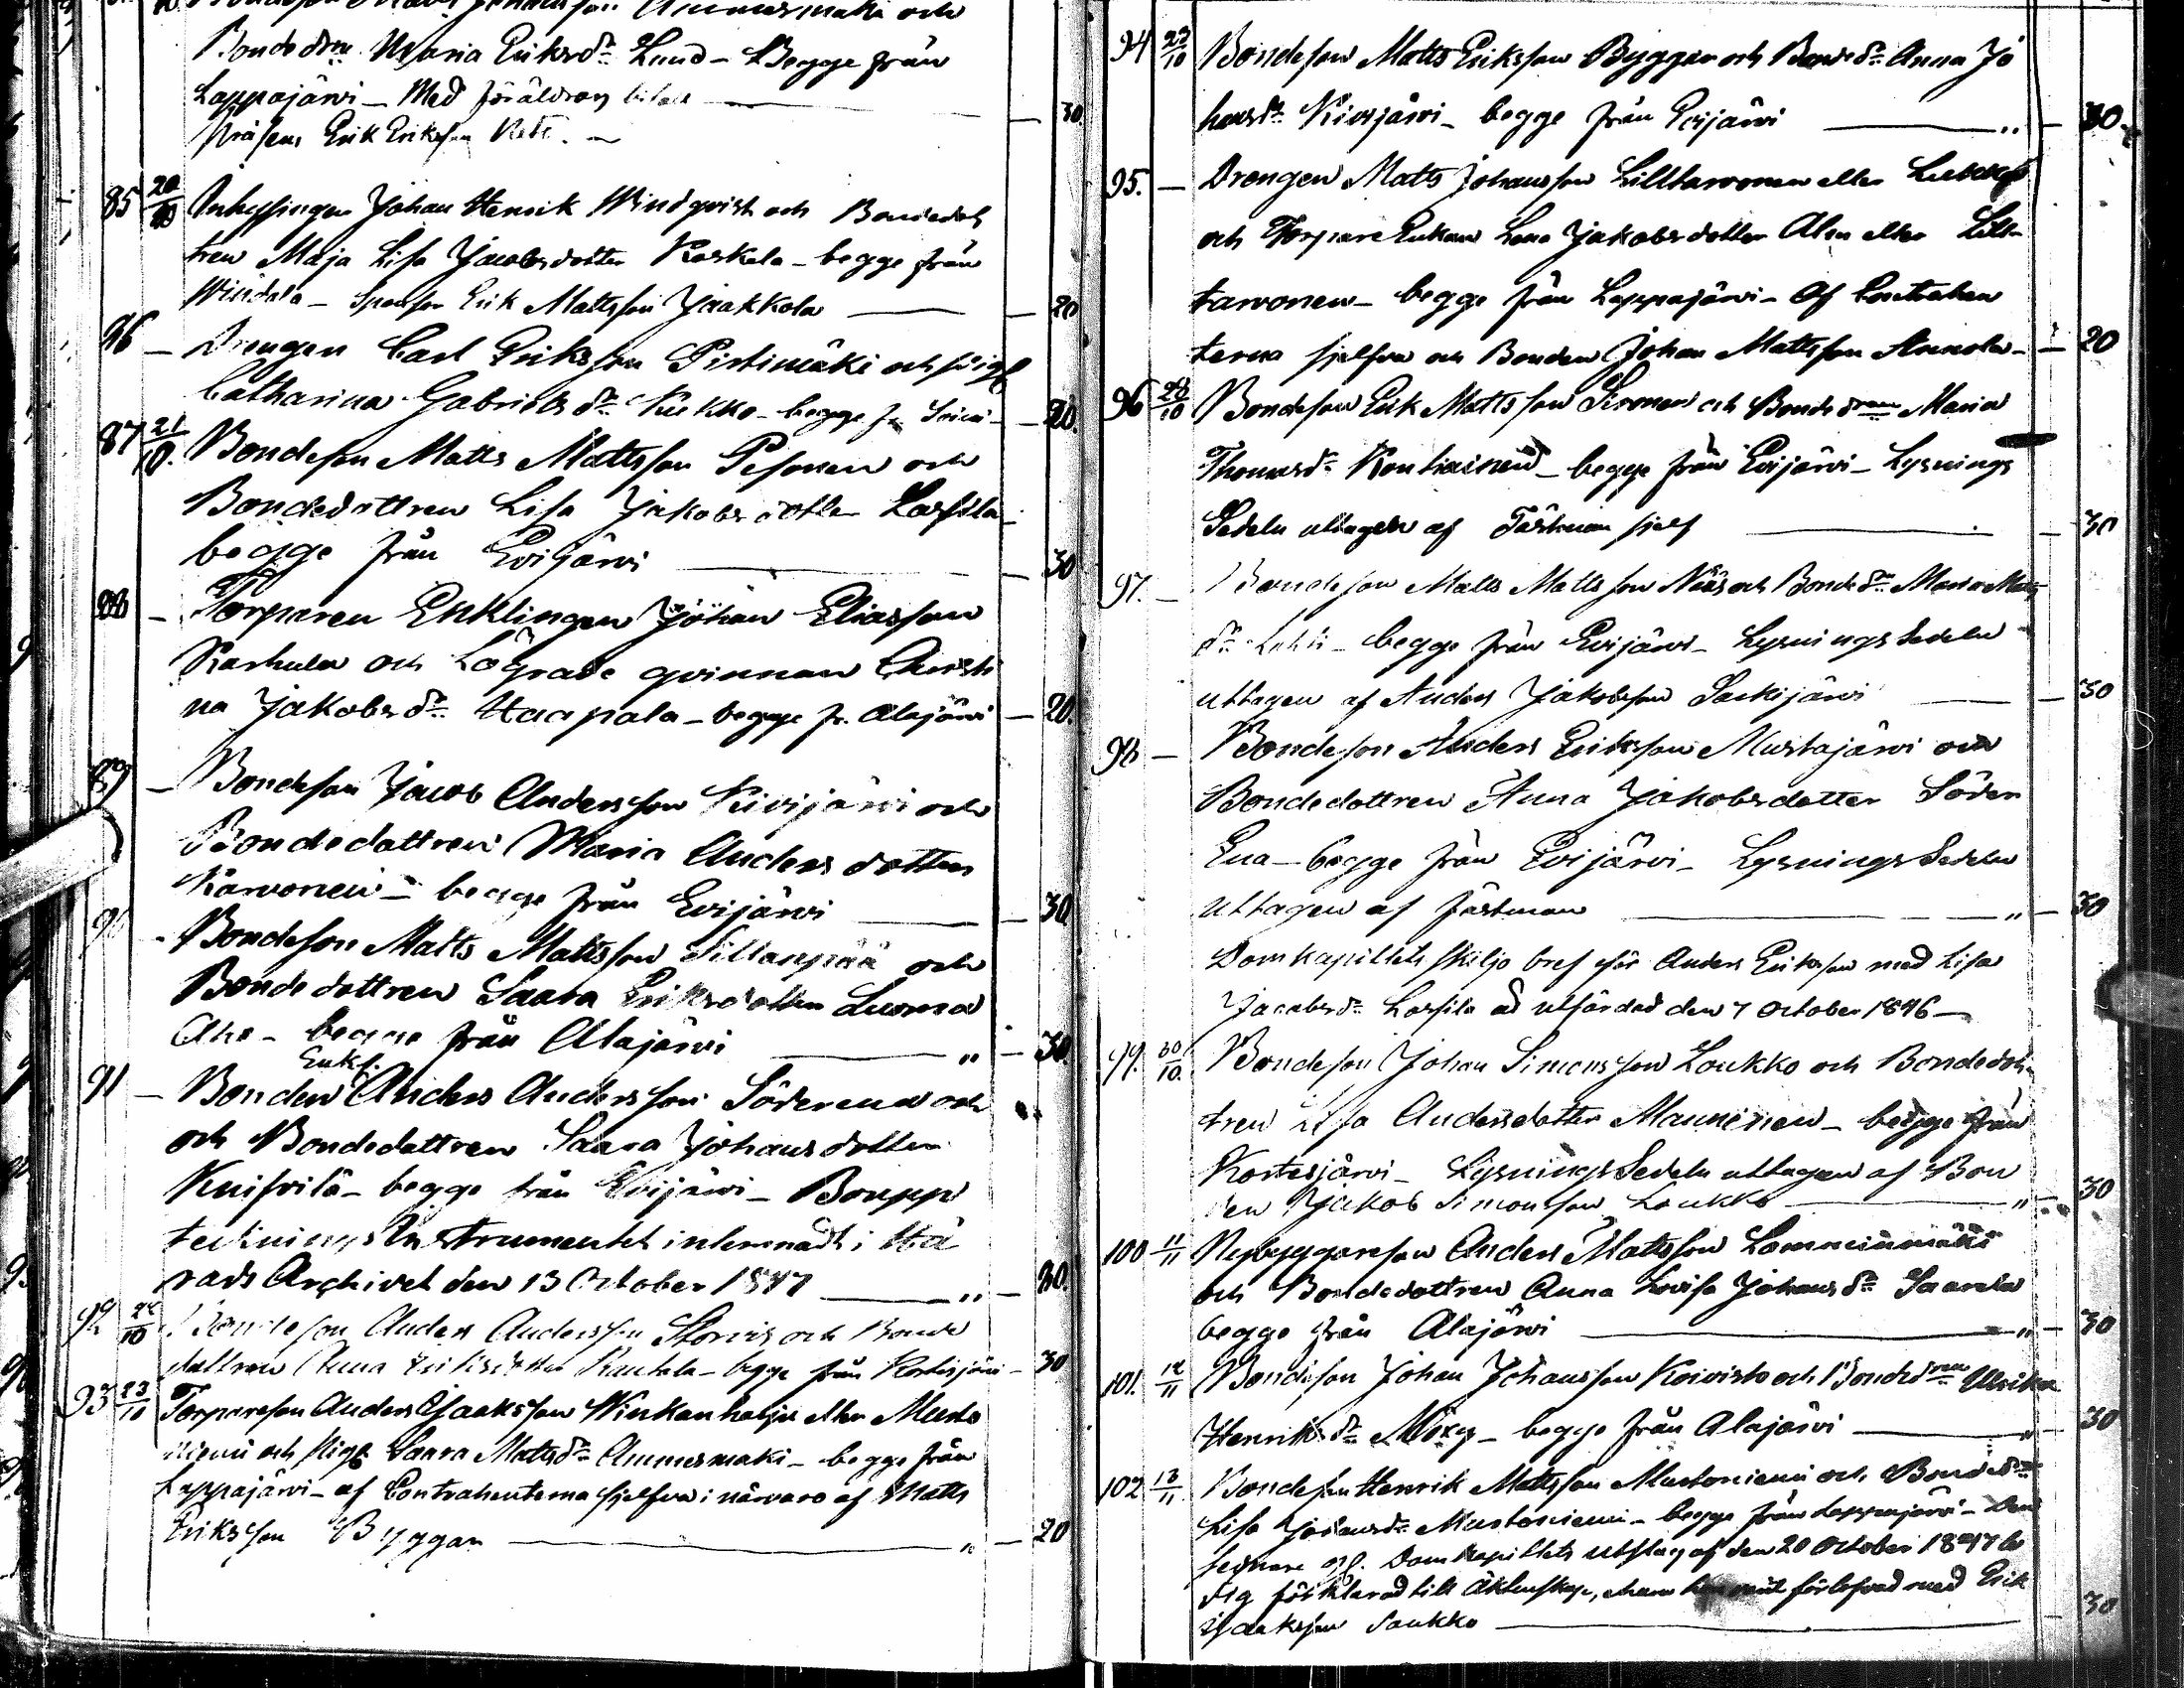 Ammesmäki och
Bondedren Maria Eriksdr Lund - Begge från
Lappajärvi - Med föräldrars — 30.
Erik Eriksson
85 20/10 Inhysingen Johan Henrik Windqvist och Bondedot
tren Maja Lisa Jacobsdotter Koskela - begge från
Windala - Erik Mattsson Jaakkola — 20
86 — Drengen Carl Eriksson Pistimäki och pigf
Catharina Gabrielsdr Kukko - begge fr — 20.
87 21/10. Bondeson Matts Mattsson Pesonen och
Bondedottren Lisa Jakobsdotter Lassila
begge från Evijärvi — 30
88 — Torparen Enklingen Johan Eliasson
Karhula och Lägrade qvinnan Christi
na Jakobsdr Haapala - begge fr. Alajärvi — 20.
89 — Bondeson Jacob Andersson Kivijärvi och
Bondedottren Maria Andersdotter
Karvonen - begge från Evijärvi — 30
90 - Bondeson Matts Mattsson Sillanpää och
Bondedottren Saara Eriksdotter Luoma
Aho - begge från Alajärvi — „ — 30.
Enkl.
91 — Bonden Anders Andersson Söderena och
och Bondedottren Saara Johansdotter
Knifsilä - begge från Evijärvi - Boupp
teckningsInstrumentet inlemnadt i Hä
rads Archivet den 13 October 1847 — „ — 30.
92 22/10 Bondeson Anders Andersson Storvis och Bonde
dottren Anna Eriksdotter Rautala - begge från Kortesjärvi - 30
93 23/10 Torpareson Anders Isaksson Winkanharju eller Musto
niemi och pigf Saara Mattsdr Ammesmäki - begge från
Lappajärvi - af Contrahenterna sjelfva i närvaro af Matts
Eriksson Byggar — „ — 20
94 23/10 Bondeson Matts Eriksson Byggar och Bondedr Anna Jo
hansdr Kivijärvi - begge från Evijärvi — „ — 30
95. — Drengen Matts Johansson Lilltarvonen eller
och TorpareEnkan Lena Jakobsdotter Alen eller Lill
tarvonen - begge från Lappajärvi - Af Contrahen
terna sjelfva och Bonden Johan Mattsson Annola — 20
96 28/10 Bondeson Erik Mattsson Sironen och Bondedren Maria
Thomasdr Kontiainen - begge från Evijärvi - Lysnings
Sedeln uttagen af Fästman sjelf — 30
97. — Bondeson Matts Mattsson Nääs och Bondedr Maria Matts
dr Lahti - begge från Evijärvi - LysningsSedeln
uttagen af Anders Jakobsson Sackijärvi — 30
98 — Bondeson Anders Eriksson Mustajärvi och
Bondedottren Anna Jakobsdotter Söder
Ena - begge från Evijärvi - LysningsSedeln
uttagen af fästman — „ — 30
Domkapitlets skiljobref för Anders Eriksson med Lisa
Jacobsdr Lassila är utfärdad den 7 October 1846 —
99. 30/10. Bondeson Johan Simonsson Loukko och Bondedot
tren Lisa Andersdotter Manninen - begge från
Kortesjärvi - LysningsSedeln uttagen af Bon
den Jakob Simonsson Loukko — „ — 30
100 11/11 Nybyggareson Anders Mattsson Lamminmäki
och Bondedottren Anna Lovisa Johansdr Saarela
begge från Alajärvi — „ — 30
101. 12/11 Bondeson Johan Johansson Koivisto och Bondedren Ulrika
Henriksdr Möxy - begge från Alajärvi — „ 30
102 13/11. Bondeson Henrik Mattsson Mustoniemi och Bondedr
Lisa Johansdr Mustoniemi - begge från Lappajärvi - Den
sednare gf. Domkapitlets utslag af den 20 October 1847 le
dig förklarad till äktenskap, ehuru hon varit förlofvad med Erik
Isaksson Saukko — 30